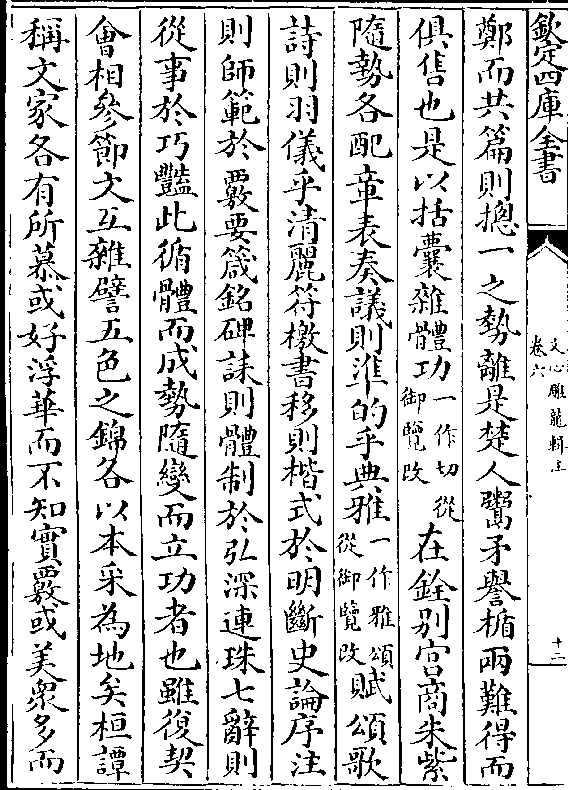 欽定四庫全書
文心雕龍輯注
卷六
十二
鄭而共篇則揔一之勢離是楚人鬻矛譽楯兩難得而
俱售也是以括囊雜體功一作切從御覽改在銓别宫商朱紫
隨勢各配章表奏議則準的乎典雅一作雅頌從御覽改賦頌歌
詩則羽儀乎清麗符檄書移則楷式於明斷史論序注
則師範於覈要箴銘碑誄則體制於弘深連珠七辭則
從事於巧豔此循體而成勢隨變而立功者也雖復契
會相參節文互雜譬五色之錦各以本采為地矣桓譚
稱文家各有所慕或好浮華而不知實覈或美衆多而